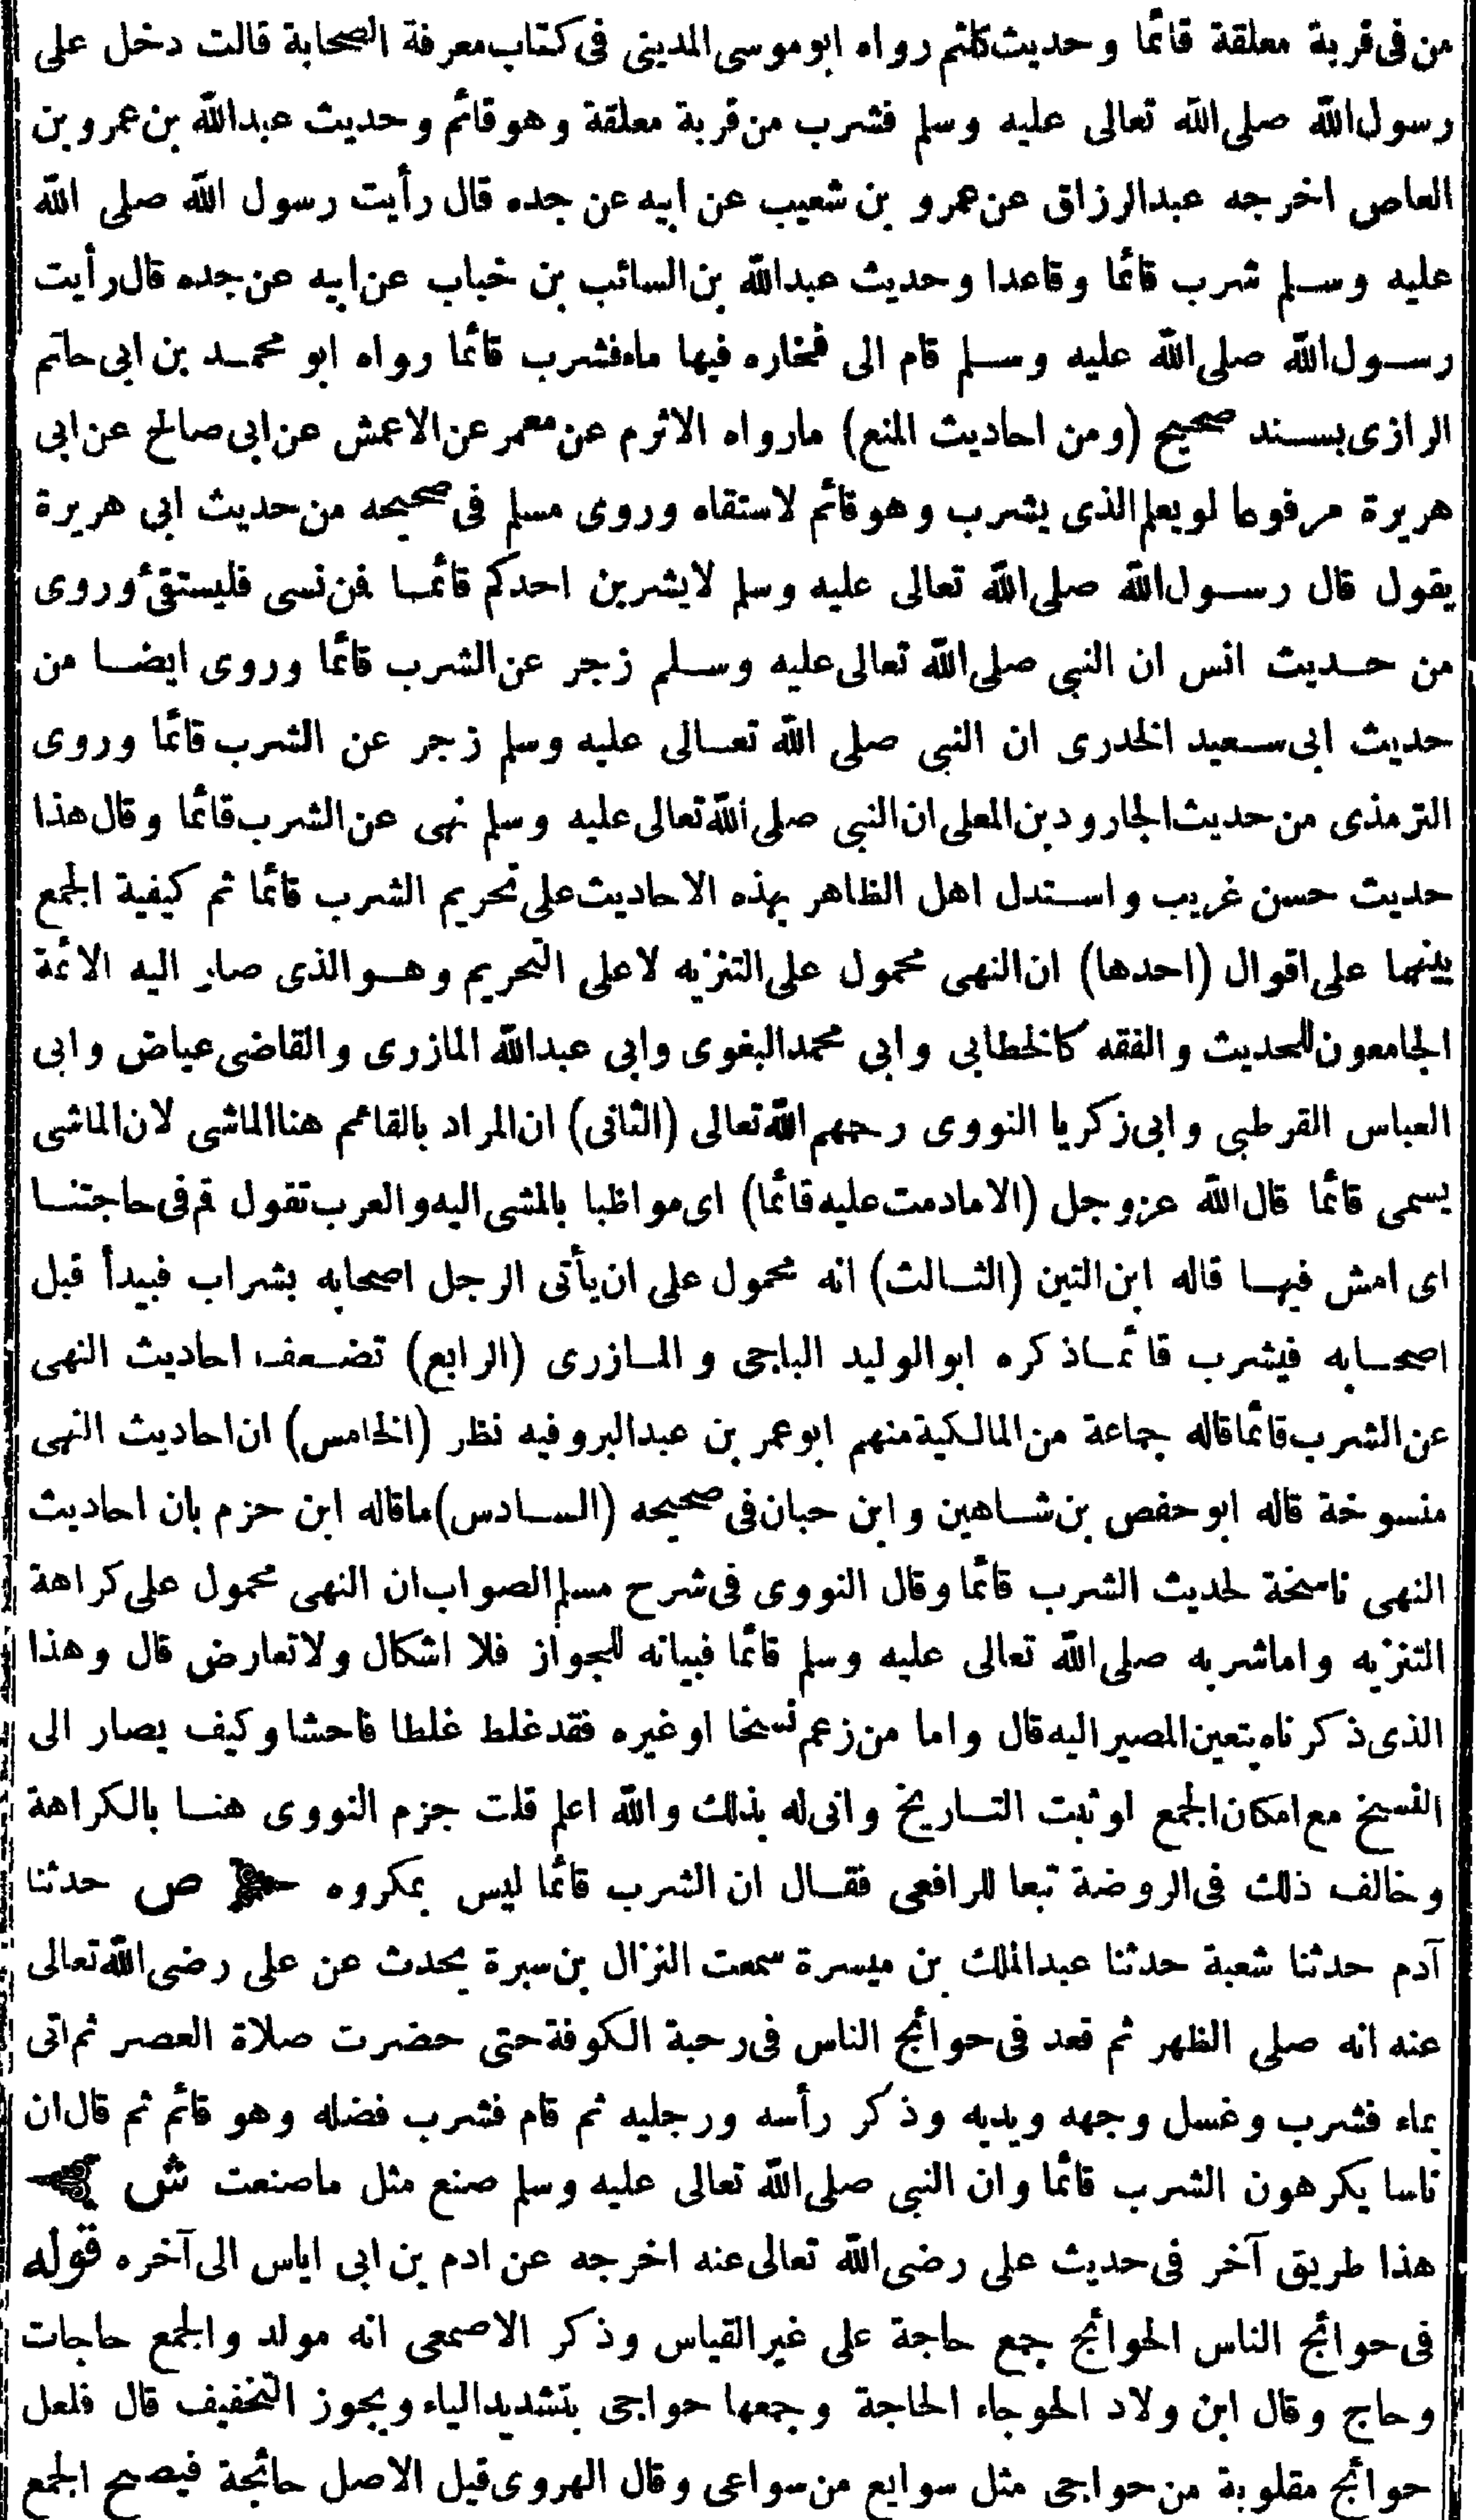 من فى قربة معلقة قائما وحديث كلثم رواه ابوموسى المدينى فى كتاب معرفة الصحابة قالت دخل على
رسول الله صلى الله تعالى عليه وسلم فشرب من قربة معلقة وهو قائم وحديث عبدالله بن عمرو بن
العاص اخرجه عبدالرزاق عن عمرو بن شعيب عن ابيه عن جده قال رأيت رسول الله صلى الله
عليه وسلم شرب قائما وقاعدا وحديث عبدالله بن السائب بن خباب عن ابيه عن جده قال رأيت
رسول الله صلى الله عليه وسلم قام الى فخاره فيها ماء فشرب قائما رواه ابو محمد بن ابى حاتم
الرازى بسند صحيح (ومن احاديث المنع) مارواه الاثرم عن معمر عن الاعمش عن ابى صالح عن ابى
هريرة مرفوعا لو يعلم الذى يشرب وهو قائم لاستقاء وروى مسلم فى صحيحه من حديث ابي هريرة
يقول قال رسول الله صلى الله تعالى عليه وسلم لايشربن احدكم قائما فمن نسى فليستقئ وروى
من حديث انس ان النبي صلى الله تعالى عليه وسلم زجر عن الشرب قائما وروى ايضا من
حديث ابى سعيد الخدرى ان النبى صلى الله تعالى عليه وسلم زجر عن الشرب قائما وروى
الترمذى من حديث الجارود بن المعلى ان النبي صلى الله تعالى عليه وسلم نهى عن الشرب قائما وقال هذا
حديث حسن غريب واستدل اهل الظاهر بهذه الاحاديث على تحريم الشرب قائما ثم كيفية الجمع
بينهما على اقوال (احدها) ان النهى محمول على التنزيه لاعلى التحريم وهو الذى صار اليه الائمة
الجامعون للحديث والفقه كالخطابى وابى محمد البغوى وابى عبدالله المازرى والقاضى عياض وابى
العباس القرطبى وابى زكريا النووى رحمهم الله تعالى (الثانى) ان المراد بالقائم هنا الماشى لان الماشى
يسمى قائما قال الله عزوجل (الا مادمت عليه قائما) اى مواظبا بالمشى اليه والعرب تقول قم فى حاجتنا
اى امش فيها قاله ابن التين (الثالث) انه محمول على ان يأتى الرجل اصحابه بشراب فيبدأ قبل
اصحابه فيشرب قائما ذكره ابوالوليد الباجى والمازرى (الرابع) تضعف احاديث النهى
عن الشرب قائما قاله جماعة من المالكية منهم ابوعمر بن عبدالبر وفيه نظر (الخامس) ان احاديث النهى
منسوخة قاله ابو حفص بن شاهين وابن حبان فى صحيحه (السادس) ماقاله ابن حزم بان احاديث
النهى ناسخة لحديث الشرب قائما وقال النووى فى شرح مسلم الصواب ان النهى محمول على كراهة
التنزيه واما شربه صلى الله تعالى عليه وسلم قائما فبيانه للجواز فلا اشكال ولاتعارض قال وهذا
الذى ذكرناه يتعين المصير اليه قال واما من زعم نسخا او غيره فقد غلط غلطا فاحشا وكيف يصار الى
النسخ مع امكان الجمع او ثبت التاريخ وانى له بذلك والله اعلم قلت جزم النووى هنا بالكراهة
وخالف ذلك فى الروضة تبعا للرافعى فقال ان الشرب قائما ليس بمكروه ص حدثنا
آدم حدثنا شعبة حدثنا عبدالملك بن ميسرة سمعت النزال بن سبرة يحدث عن على رضى الله تعالى
عنه انه صلى الظهر ثم قعد فى حوائج الناس فى رحبة الكوفة حتى حضرت صلاة العصر ثم اتى
بماء فشرب وغسل وجهه ويديه وذكر رأسه ورجليه ثم قام فشرب فضله وهو قائم ثم قال ان
ناسا يكرهون الشرب قائما وان النبى صلى الله تعالى عليه وسلم صنع مثل ماصنعت ش
هذا طريق آخر فى حديث على رضى الله تعالى عنه اخرجه عن ادم بن ابى اياس الى آخره قوله
فى حوائج الناس الحوائج جمع حاجة على غير القياس وذكر الاصمعى انه مولد والجمع حاجات
وحاج وقال ابن ولاد الحوجاء الحاجة وجمعها حواجى بتشديد الياء ويجوز التخفيف قال فلعل
حوائج مقلوبة من حواجى مثل سوايع من سواعى وقال الهروى قيل الاصل حائجة فيصح الجمع